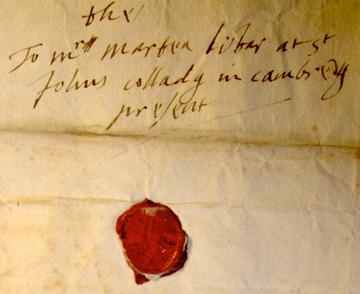 the
To mrs marten lister at st
Johns colladg in cambredg
present